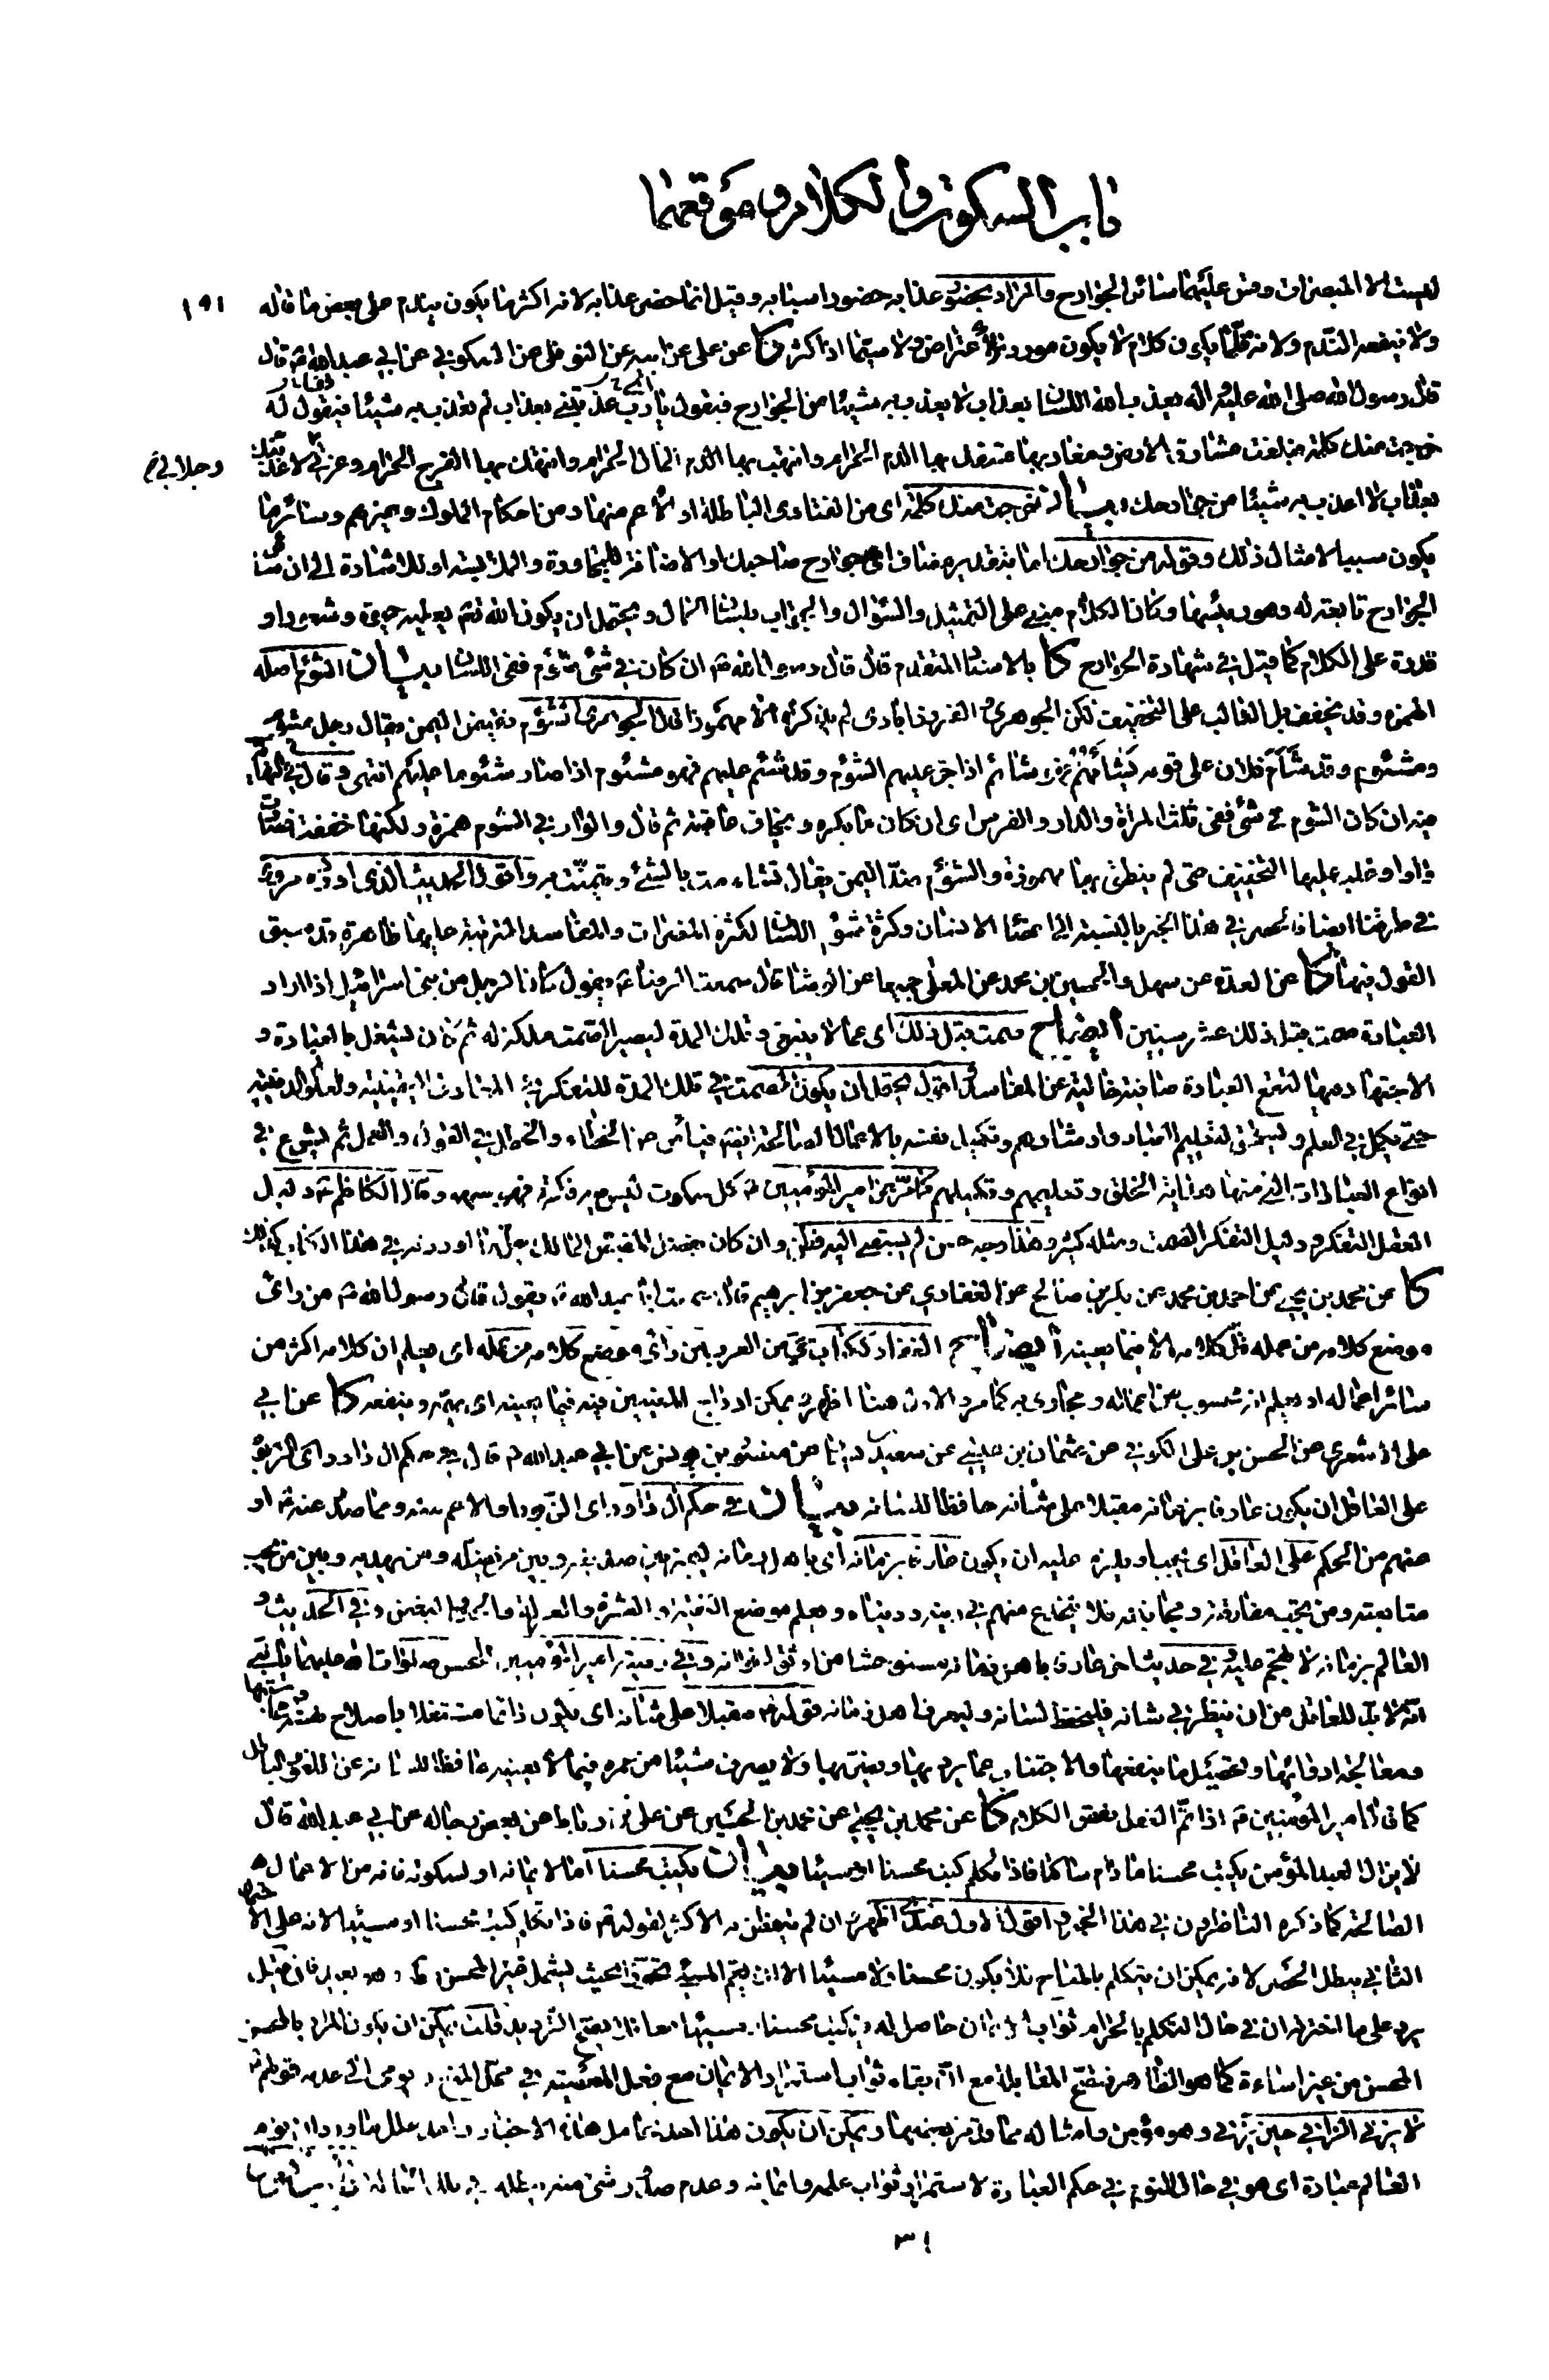 باب السكوت والكلام وموقعهما
ليست الا المتعبرات ومن عليهما سائر الجوارح والمراد بحضور عذابه حضور اسبابه وقيل انما حضر عذابه لانه اكثر ما يكون يندم على بعض ما قاله
١٩١
ولا ينفعه الندم ولانه قلما يكون كلام لا يكون موردا للاعتراض ولا سيما اذا كثر كا عن علي عن ابيه عن النوفلي عن السكوني عن ابي عبد الله ع قال
قال رسول الله صلى الله عليه واله يعذب الله اللسان بعذاب لا يعذب به شيئا من الجوارح فيقول يا رب عذبتني بعذاب لم تعذب به شيئا فيقول له
خرجت منك كلمة فبلغت مشارق الارض ومغاربها فسفك بها الدم الحرام وانتهب بها المال الحرام وانتهك بها الفرج الحرام وعزتي لاعذبنك
وجلالي
بعذاب لا اعذب به شيئا من جوارحك بيان خرجت منك كلمة اى من الفتاوى الباطلة او الاعم منها ومن احكام الملوك وغيرهم وسائر ما
يكون سببا لامثال ذلك وقوله من جوارحك اما بتقدير مضاف اى جوارح صاحبك او الاضافة للمجاورة والملابسة او للاشارة الى ان سائر
الجوارح تابعة له وهو رئيسها وكان الكلام مبني على التمثيل والسؤال والجواب بلسان الحال ويحتمل ان يكون الله تعالى يعطيه حيوة وشعورا و
قدرة على الكلام كما قيل في شهادة الجوارح كا بالاسناد المتقدم قال قال رسول الله ص ان كان في شئ شؤم ففي اللسان بيان الشؤم اصله
الهمزة وقد يخفف بل الغالب على التخفيف لكن الجوهري والفيروزابادى لم يذكراه الا مهموزا قال الجوهري الشؤم نقيض اليمن يقال رجل مشوم
ومشئوم وقد شأم فلان على قومه يشأمهم فهو شائم اذا جر عليهم الشؤم وقد شئم عليهم فهو مشئوم اذا صار شئوما عليهم انتهى وقال في النهاية
فيه ان كان الشؤم في شئ ففي ثلث المراة والدار والفرس اى ان كان ما يكره ويخاف عاقبته ثم قال والواو في الشوم همزة ولكنها خففت فصارت
واوا وغلب عليها التخفيف حتى لم ينطق بها مهموزة والشؤم ضد اليمن يقال تشاءمت بالشئ وتيمنت به واقول الحديث الذى اورده مروى
في طرقنا ايضا فالحصر في هذا الخبر بالنسبة الى اعضاء الانسان وكثرة شؤم اللسان لكثرة المضرات والمفاسد المترتبة عليها ظاهرة وقد سبق
القول فيها كا عن العدة عن سهل والحسين بن محمد عن المعلى جميعا عن الوشا قال سمعت الرضا ع يقول كان الرجل من بني اسرائيل اذا اراد
العبادة صمت قبل ذلك عشر سنين ايضاح صمت قبل ذلك اى عما لا ينبغي وتلك المدة ليصير الصمت ملكة له ثم كان يشتغل بالعبادة و
الاجتهاد فيها لتقع العبادة صافية خالية عن المفاسد اقول يحتمل ان يكون الصمت في تلك المدة للتفكر في المعارف اليقينية والعلوم الدينية
حتى يكمل في العلم ويستحق لتعليم العباد وارشادهم وتكميل نفسه بالاعمال الصالحة ايضا فيأمن من الخطاء والخطل في القول والعمل ثم يشرع في
انواع العبادات التي منها هداية الخلق وتعليمهم وتكميلهم كما مر عن امير المؤمنين ع كل سكوت ليس فيه فكرة فهو سهو وقال الكاظم ع دليل
العقل التفكر ودليل التفكر الصمت ومثله كثير وهذا وجه حسن لم يسبقني اليه فطن وان كان
كا عن محمد بن يحيى عن احمد بن محمد عن بكر بن صالح عن الغفاري عن جعفر بن ابرهيم قال سمعت ابا عبد الله ع يقول قال رسول الله ص من راى
موضع كلامه من عمله قل كلامه الا فيما يعنيه ايضاح الغفار ككتاب حي من العرب من راى موضع كلامه من عمله اى يعلم ان كلامه اكثر من
سائر اعماله او يعلم انه محسوب من اعماله ومجازى به كما مر والاول هنا اظهر ويمكن ادراج المعنيين فيه فيما يعنيه اى يهمه وينفعه كا عن ابي
علي الاشعري عن الحسن بن علي الكوفي عن عثمان بن عيسى عن سعيد بن يسار عن منصور بن يونس عن ابي عبد الله ع قال في حكم ال داود
على العاقل ان يكون عارفا بزمانه مقبلا على شأنه حافظا للسانه بيان في حكم ال داود اى الزبور او الاعم منه ومما صدر عنه ع او
عنهم من الحكم على العاقل اى يجب او يلزم عليه ان يكون عارفا بزمانه اى باهل زمانه ليميز بين صديقه وعدوه وبين من يضله ومن يهديه وبين من يجب
متابعته ومن يجب مفارقته ومجانبته فلا ينخدع منهم في دينه ودنياه ويعلم موضع التقية والعشرة والعزلة والحب والبغض وفي الحديث و
العالم بزمانه لا تهجم عليه وفي حديث اخر عارفا باهل زمانه مستوحشا من اوثق اخوانه وفي وصية امير المؤمنين للحسن صلوات الله عليهما يا بني
انه لا بد للعاقل من ان ينظر في شانه فليحفظ لسانه وليعرف اهل زمانه قوله ع مقبلا على شأنه اى يكون دائما مشتغلا باصلاح نفسه ومحاسبتها
ومعالجة ادوائها وتحصيل ما ينفعها والاجتناب عما يرديها ويضر بها ولا يصرف شيئا من عمره فيما لا يعنيه حافظا للسانه عن اللغو والباطل
كما قال امير المؤمنين ع اذا تم العقل نقص الكلام كا عن محمد بن يحيى عن محمد بن الحسين عن علي بن رباط عن بعض رجاله عن ابي عبد الله قال
لا يزال العبد المؤمن يكتب محسنا ما دام ساكتا فاذا تكلم كتب محسنا او مسيئا بيان يكتب محسنا اما لايمانه او لسكوته فانه من الاعمال
الصالحة كما ذكره الناظرون في هذا الخبر اقول الاول عندي اظهر وان لم يتفطن به الاكثر لقوله ع فاذا تكلم كتب محسنا او مسيئا لانه على الاحتمال
الثاني يبطل الحصر لانه يمكن ان يتكلم بالمباح فلا يكون محسنا ولا مسيئا الا ان يعم المسئ تجوزا بحيث يشمل غير المحسن مطلقا وهو بعيد فان قيل
يرد على ما اخترته ان في حال التكلم بالحرام ثواب الايمان حاصل له فيكتب محسنا ومسيئا معا فلا يصح الترديد قلت يمكن ان يكون المراد بالمحسن
المحسن من غير اساءة كما هو الظاهر فتصح المقابلة مع ان بقاء ثواب استمرار الايمان مع فعل المعصية في محل المنع ويومى الى عدمه قولهم ع
لا يزني الزاني حين يزني وهو مؤمن وامثاله مما قد مر بعضها ويمكن ان يكون هذا احد محامل هذه الاخبار واحد علل ما ورد ان نوم
العالم عبادة اى هو في حال النوم في حكم العبادة لاستمرار ثواب علمه وايمانه وعدم صدور شئ منه يبطله في تلك الحالة
٣١